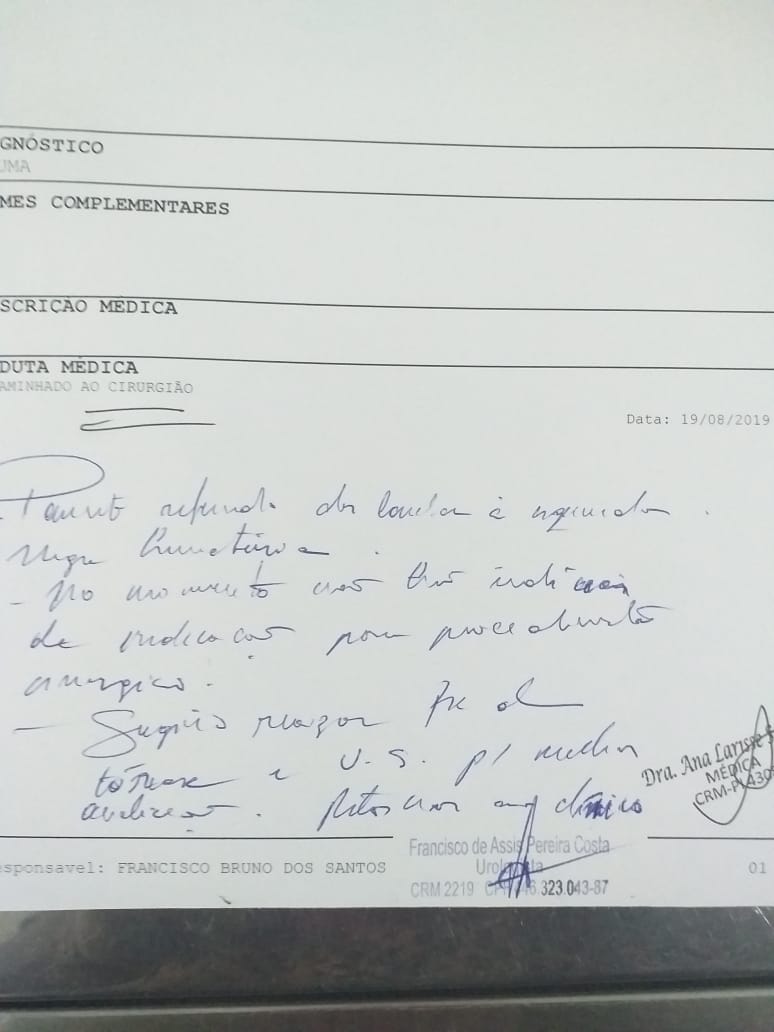 GNÓSTICO
UMA
MES COMPLEMENTARES
SCRIÇÃO MÉDICA
DUTA MÉDICA
AMINHADO AO CIRURGIÃO
Data: 19/08/2019
Paciente referindo dor lombar à esquerda.
Nega hematúria.
- No momento não
de indicação para procedimento
cirúrgico.
- Sugiro realizar RX de
tórax e U.S. p/ melhor
avaliação. Retornar clínico
Dra. Ana Larisse
MÉDICA
CRM-PI 430
Francisco de Assis Pereira Costa
Urologista
CRM 2219 .323.043-87
esponsavel: FRANCISCO BRUNO DOS SANTOS
01